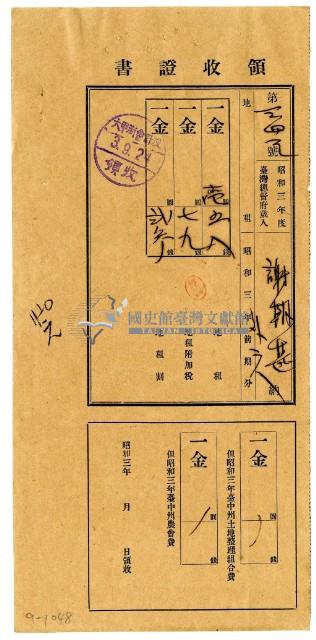 領收證書
第 號
昭和三年度
臺灣總督府歲入
地租
昭和三年前期分
謝朝基
外 人
納
一金 圓 錢 地租
一金 圓 七九 錢 地租附加稅
一金 圓 錢 地租割
3.9.24
領收
國史館臺灣文獻館
TAIWAN HISTORICA
一金 圓 錢
但昭和三年臺中州土地整理組合費
一金 圓 錢
但昭和三年臺中州農會費
昭和三年 月 日領收
9-1048